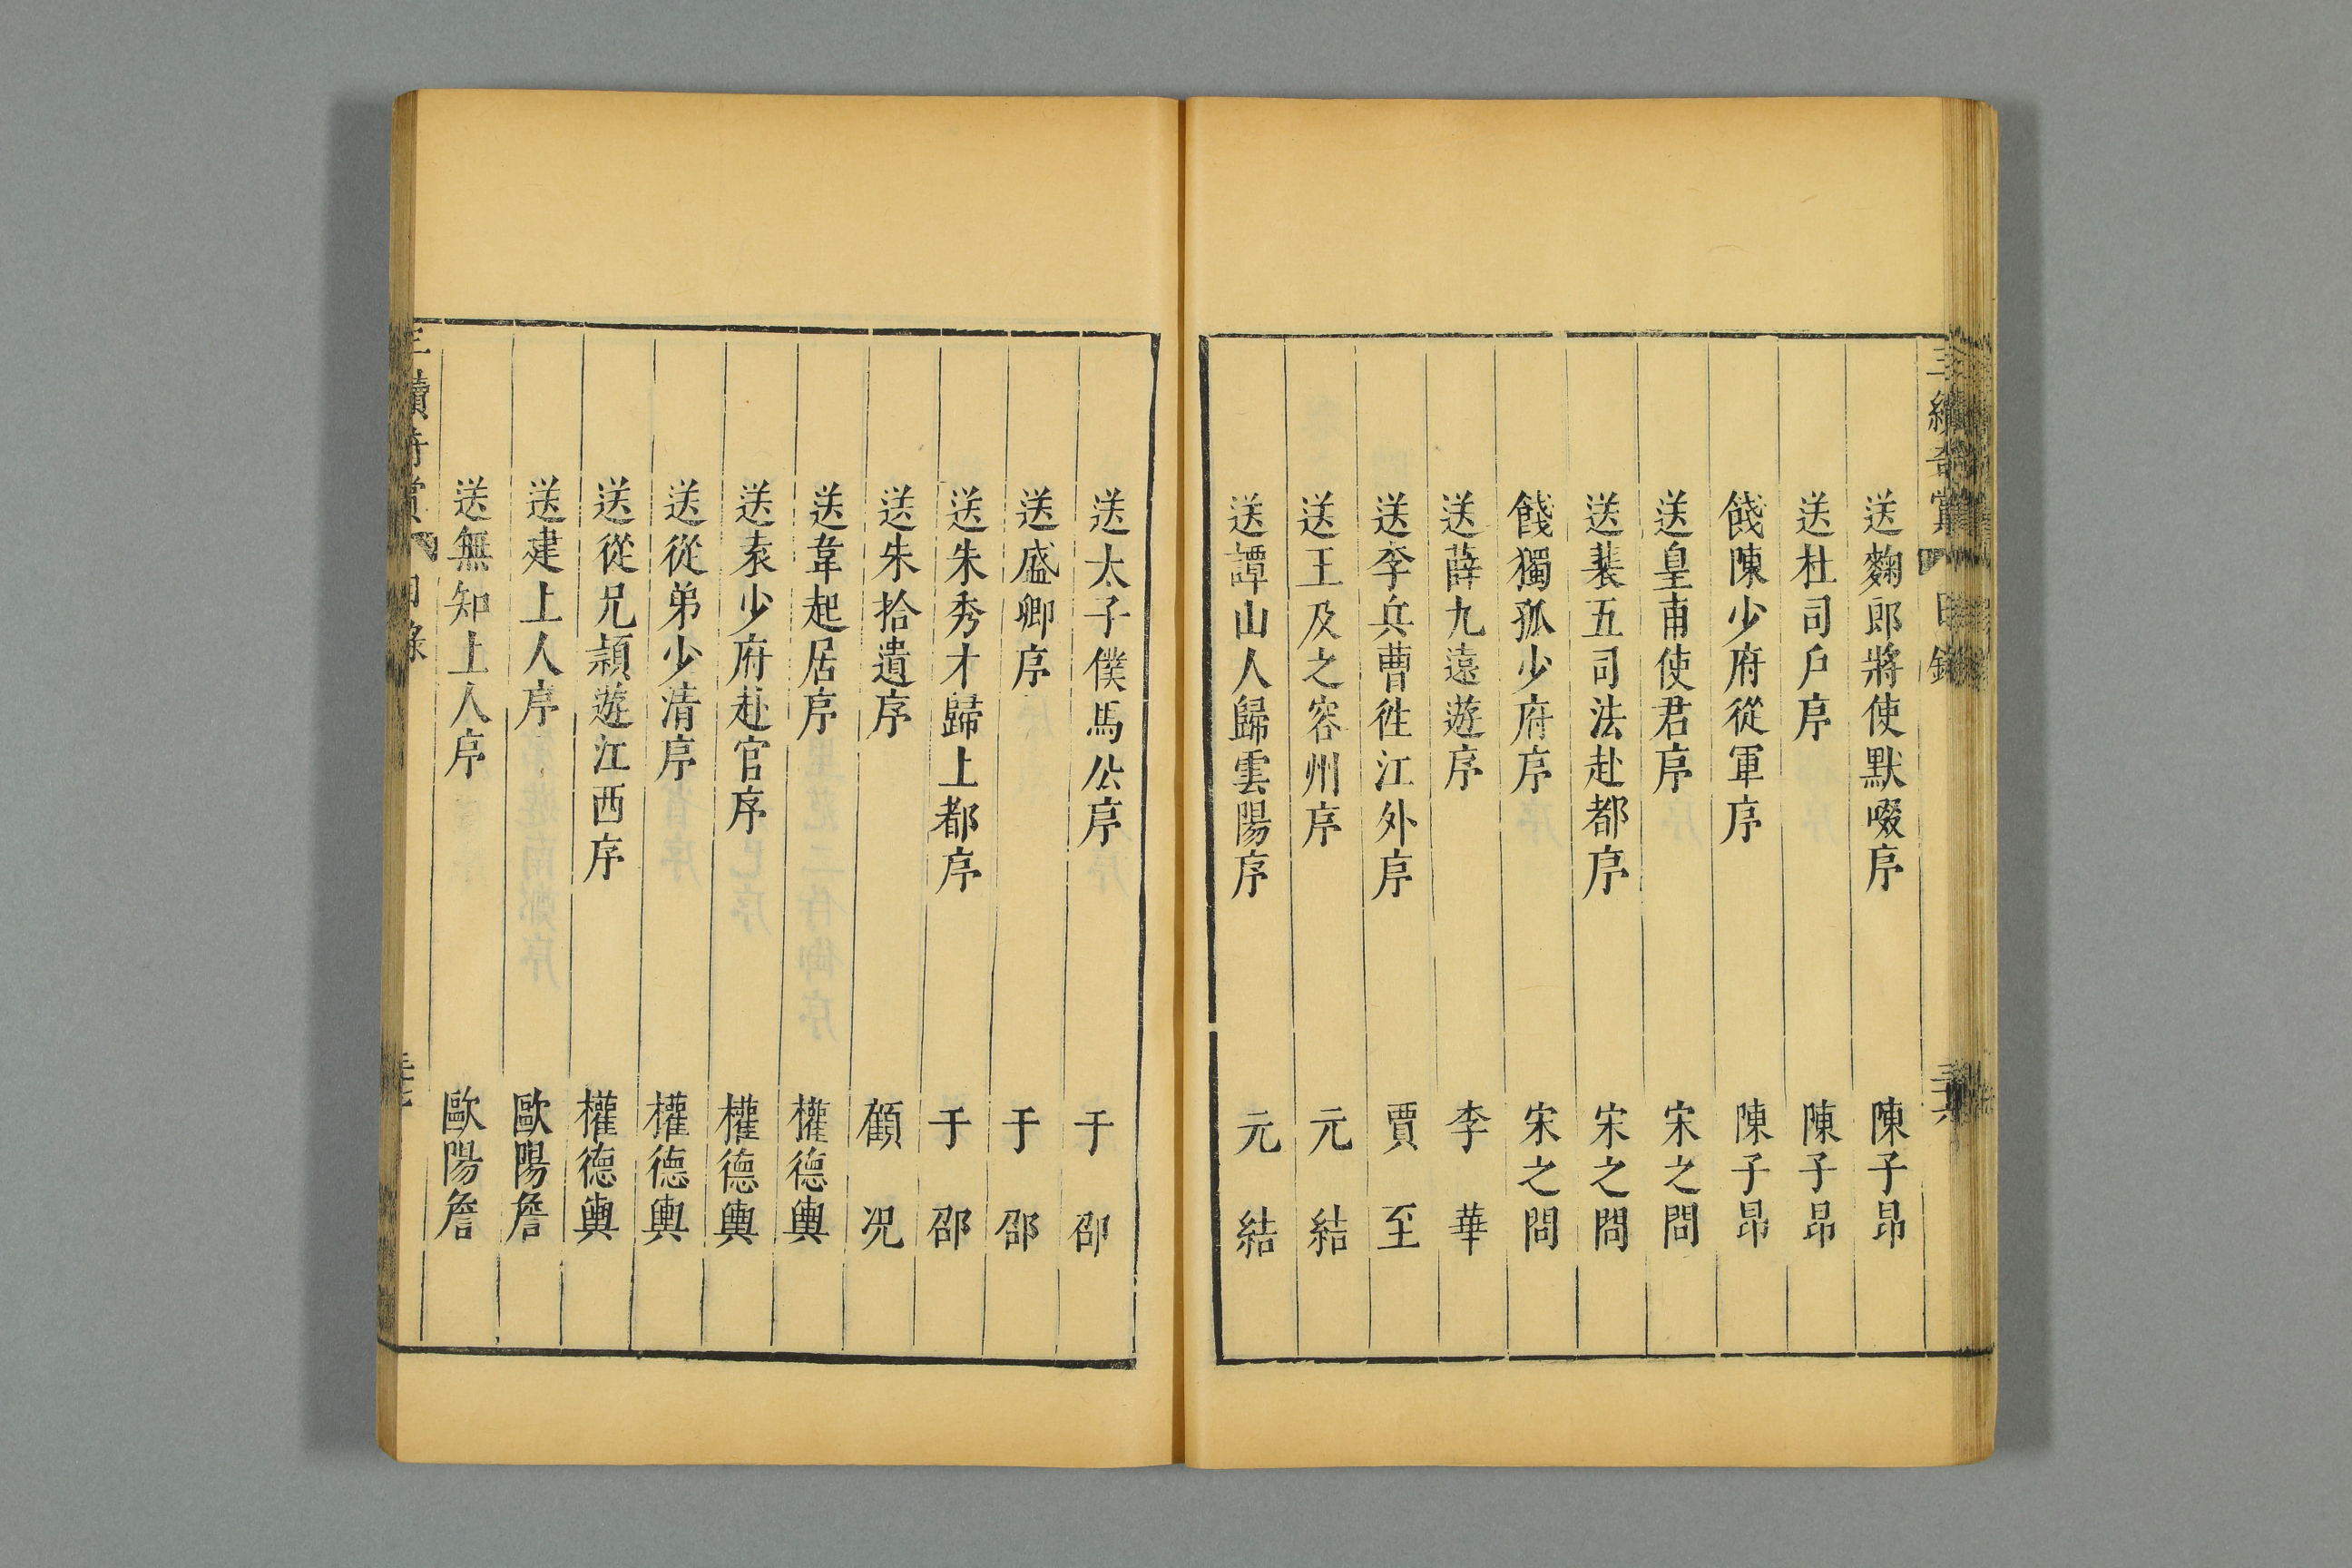 三續奇賞 目錄
送麴郎將使默啜序 陳子昂
送杜司戶序 陳子昂
餞陳少府從軍序 陳子昂
送皇甫使君序 宋之問
送裴五司法赴都序 宋之問
餞獨孤少府序 宋之問
送薛九遠遊序 李華
送李兵曹徃江外序 賈至
送王及之容州序 元結
送譚山人歸雲陽序 元結
送太子僕馬公序 于邵
送盛卿序 于邵
送朱秀才歸上都序 于邵
送朱拾遺序 顧况
送韋起居序 權德輿
送袁少府赴官序 權德輿
送從弟少清序 權德輿
送從兄潁遊江西序 權德輿
送建上人序 歐陽詹
送無知上人序 歐陽詹
三續奇賞 目錄